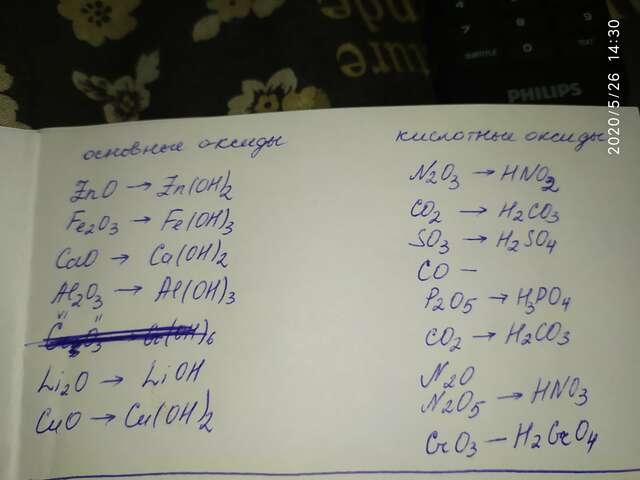 основные оксиды
ZnO → Zn(OH)2
Fe2O3 → Fe(OH)3
CaO → Ca(OH)2
Al2O3 → Al(OH)3
Li2O → LiOH
CuO → Cu(OH)2
кислотные оксиды
N2O3 → HNO2
CO2 → H2CO3
SO3 → H2SO4
CO —
P2O5 → H3PO4
CO2 → H2CO3
N2O
N2O5 → HNO3
CrO3 — H2CrO4
PHILIPS
SUBTITLE
TEXT
4
7
8
9
0
ture
2020/5/26 14:30